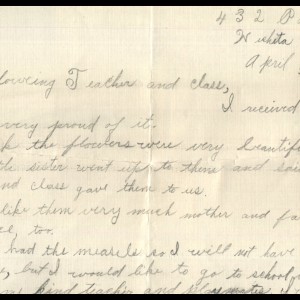 432 P
Wichita
April
lowing Teacher and class,
I received
very proud of it.
k the flowers were very beautif
tle sister went up to them and
nd class gave them to us.
like them very much mother and fa
e, too.
had the measels so I will not have
, but I would like to go to school
kind teacher and playmates